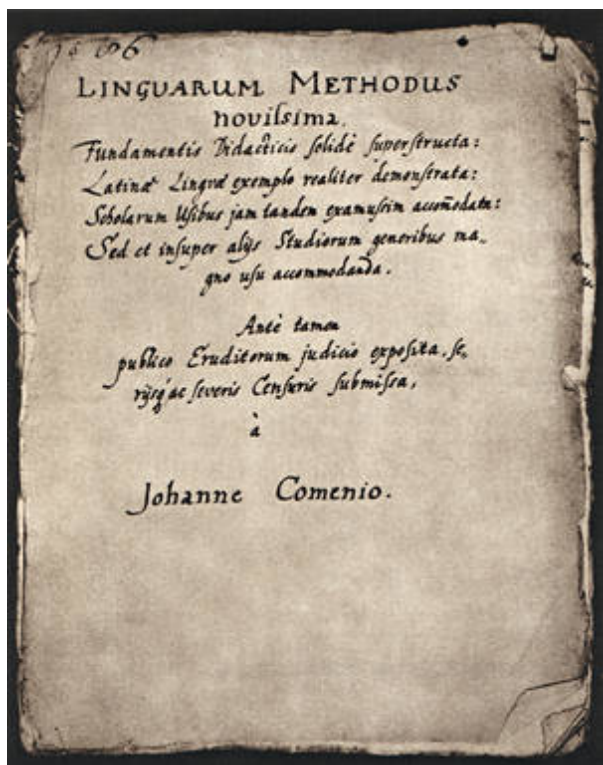 LINGUARUM METHODUS
novilsima.
Fundamentis Didacticis solidè superstructa:
Latinæ Linguæ exemplo realiter demonstrata:
Scholarum Usibus jam tandem examussim accom̄odata:
Sed et insuper alijs Studiorum generibus ma„
gno usu accommodanda.
Antè tamen
publico Eruditorum judicio exposita, se„
rijsq́ ac severis Censuris submissa,
à
Johanne Comenio.